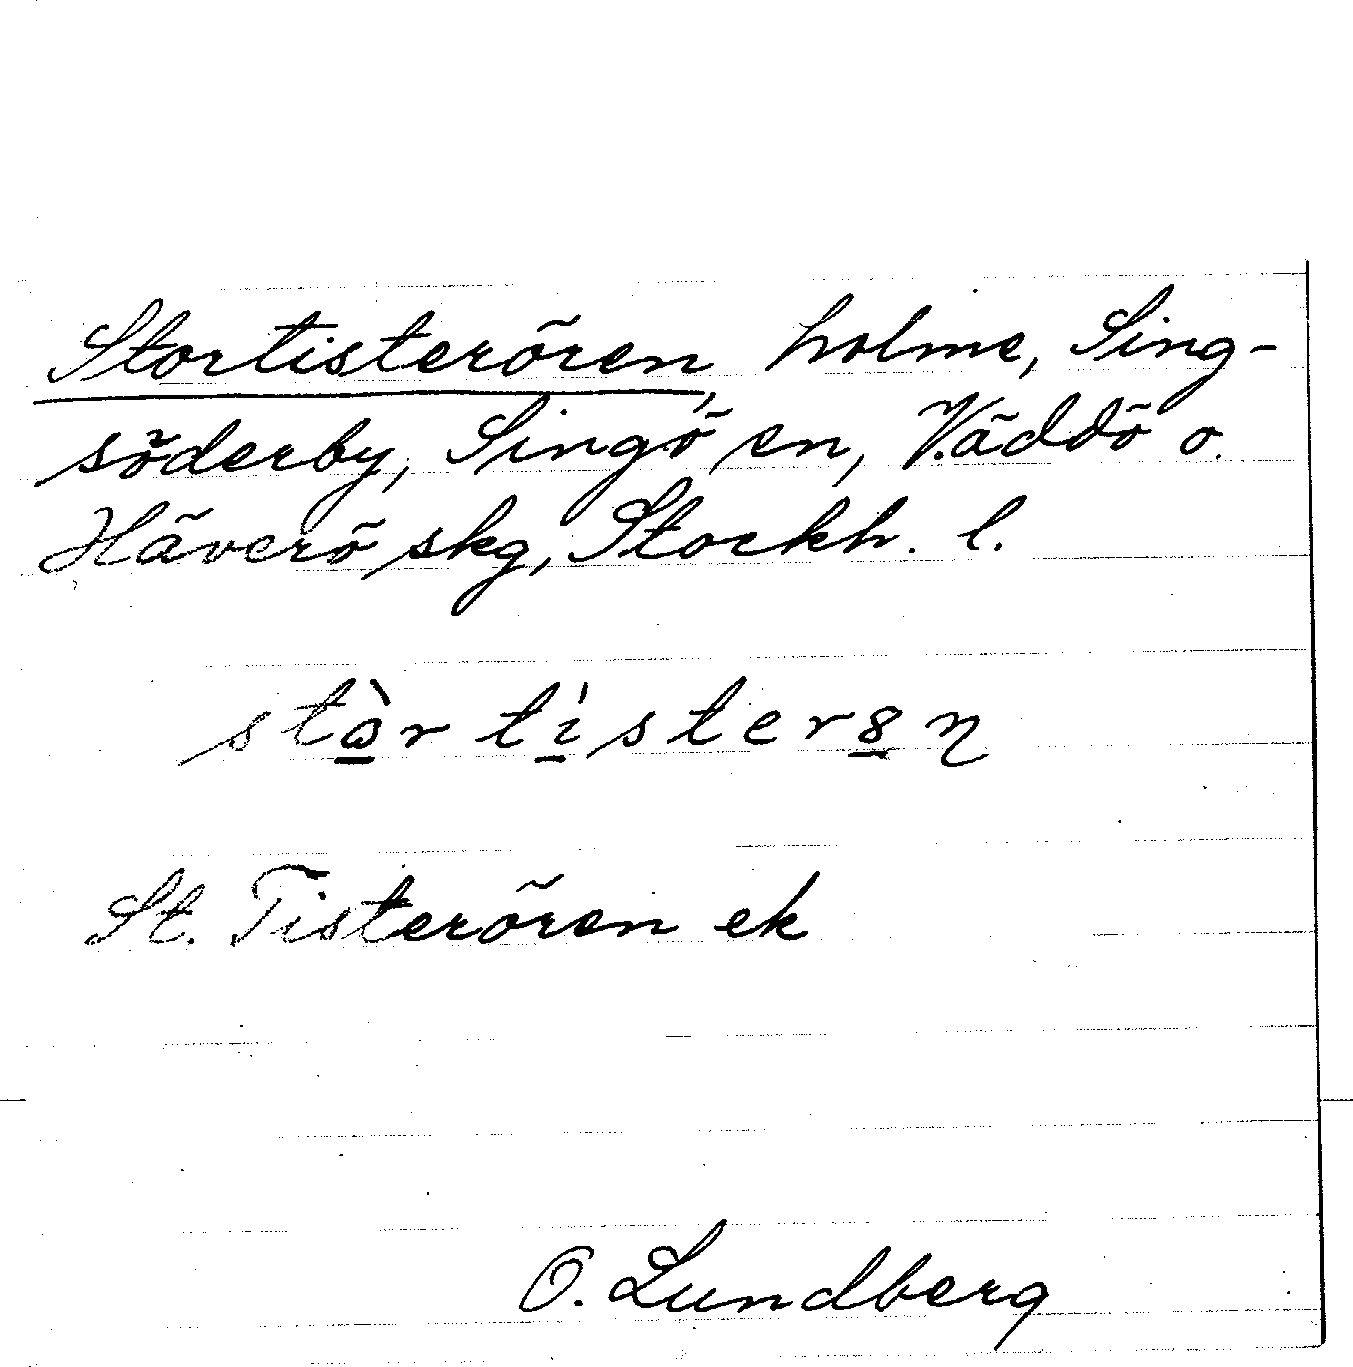 Stortisterören, holme, Sing-
söderby, Singö sn, Väddö o.
Häverö skg, Stockh. l.
stò̱r tí̱sterȣ̱n
St. Tisterören ek
O. Lundberg